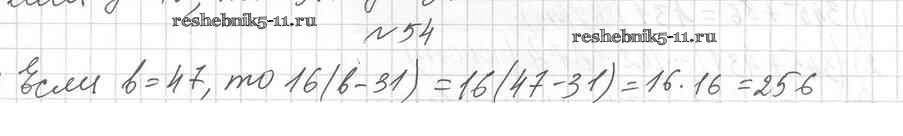 reshebnik5-11.ru
№54
reshebnik5-11.ru
Если b=47, то 16(b-31)=16(47-31)=16·16=256